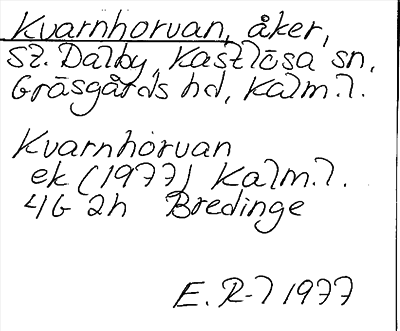 Kvarnhorvan, åker,
St. Dalby, Kastlösa sn,
Gräsgårds hd, Kalm.l.
Kvarnhorvan
ek (1977) Kalm.l.
4G 2h Bredinge
E. R-l 1977